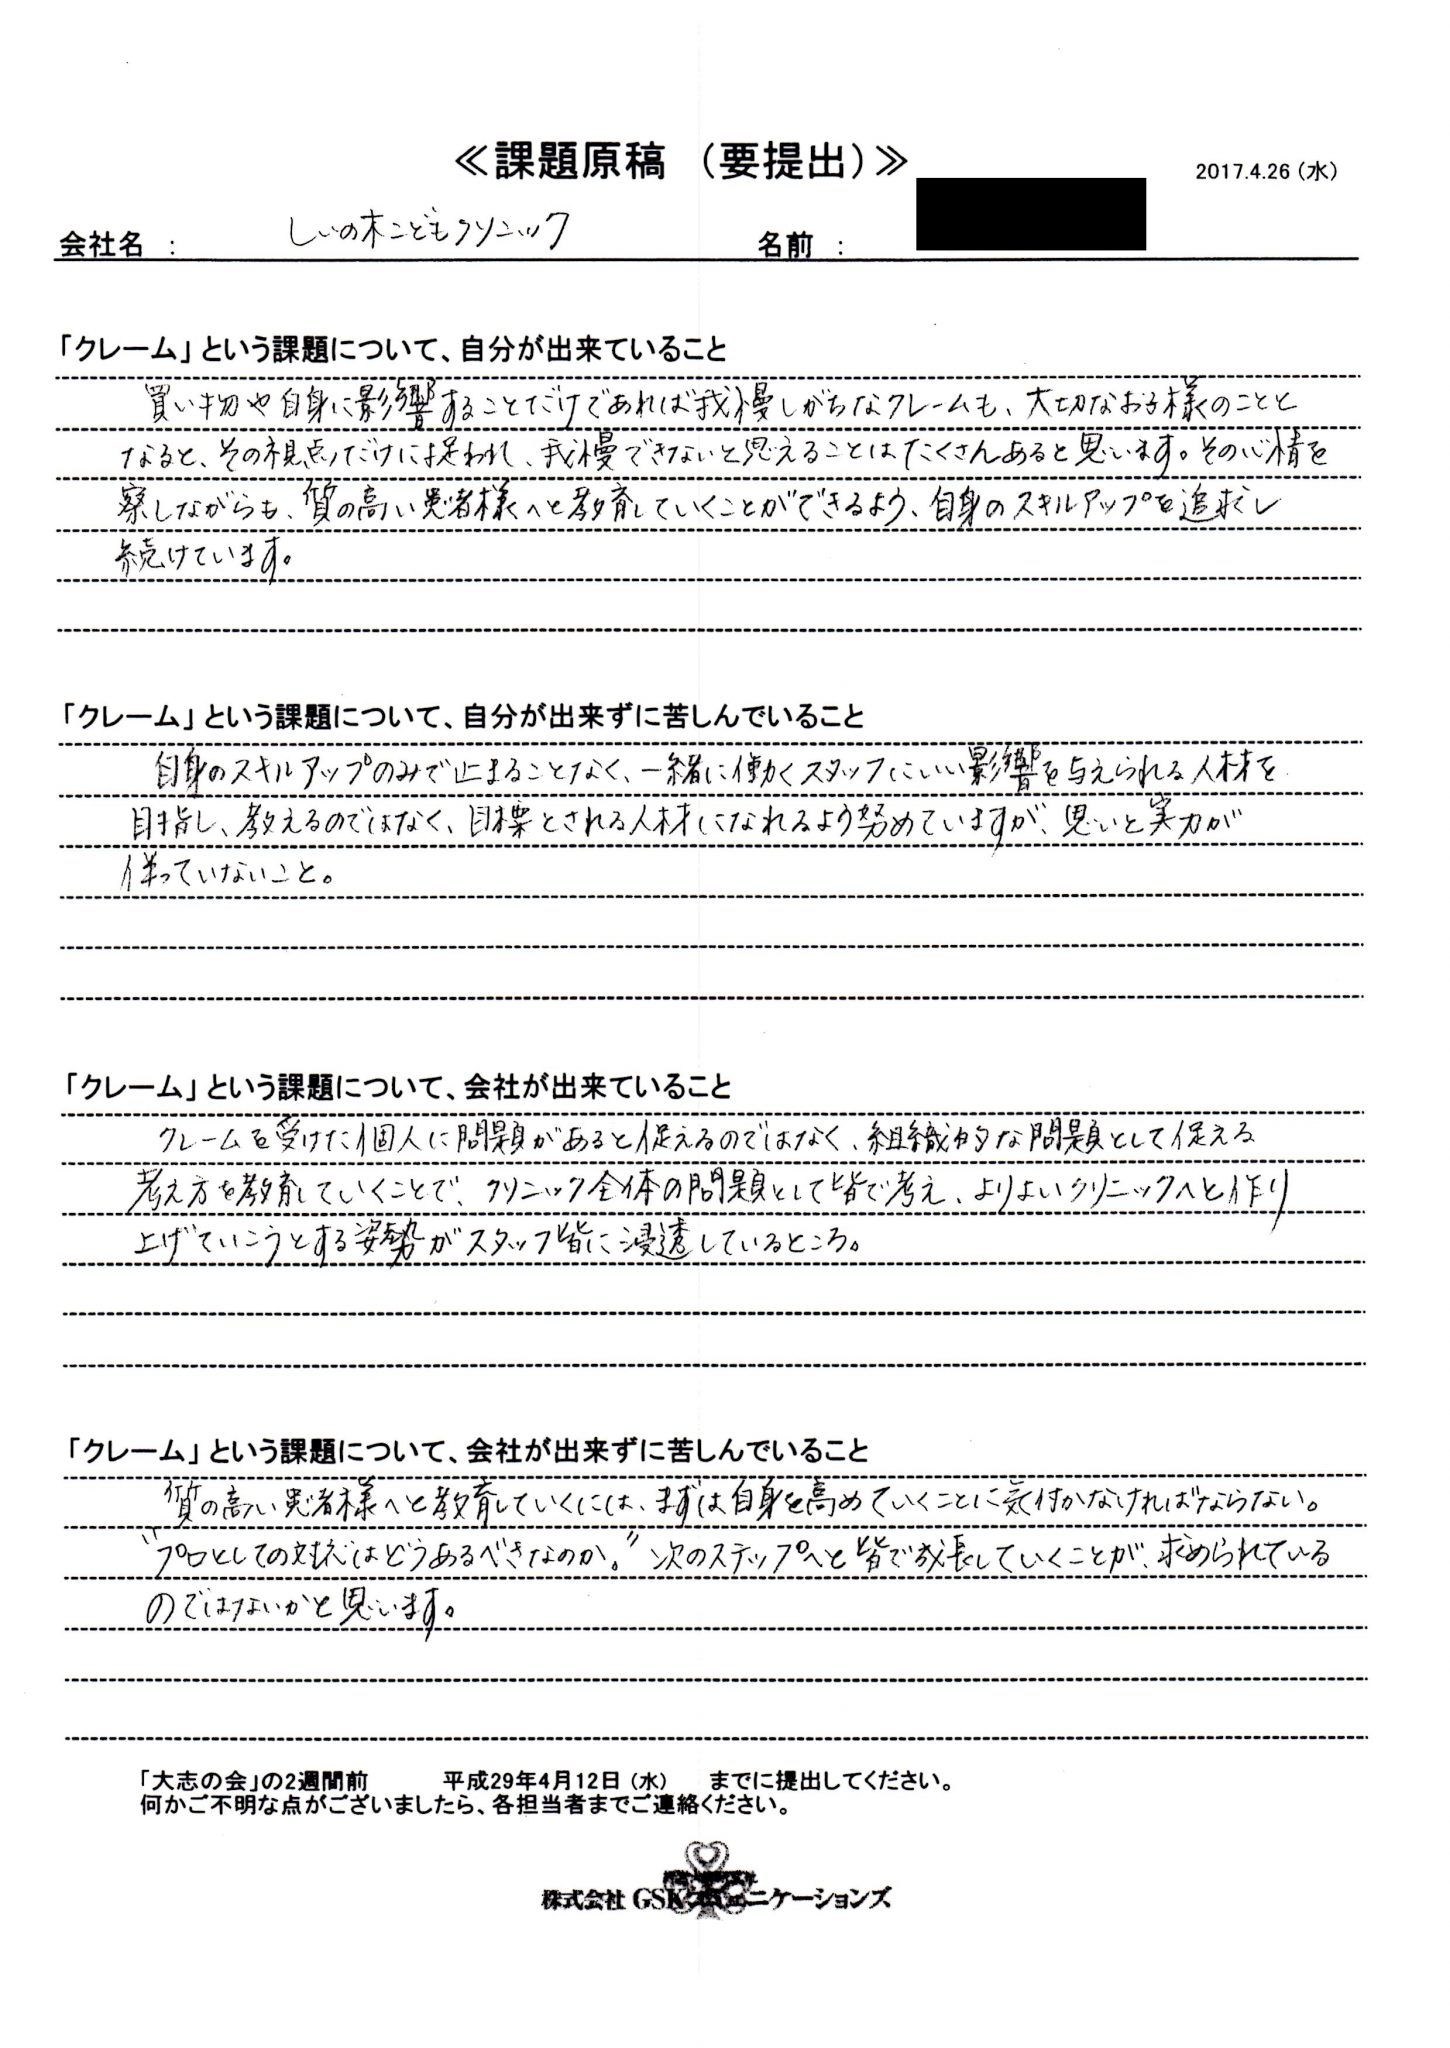 ≪課題原稿 （要提出）≫
2017.4.26（水）
会社名 ： しいの木こどもクリニック 名前 ：
「クレーム」という課題について、自分が出来ていること
買い物や自身に影響することだけであれば我慢しがちなクレームも、大切なお子様のことと
なると、その視点だけに捉われ、我慢できないと思えることはたくさんあると思います。その心情を
察しながらも、質の高い患者様へと教育していくことができるよう、自身のスキルアップを追求し
続けています。
「クレーム」という課題について、自分が出来ずに苦しんでいること
自身のスキルアップのみで止まることなく、一緒に働くスタッフにいい影響を与えられる人材を
目指し、教えるのではなく、目標とされる人材になれるよう努めていますが、思いと実力が
伴っていないこと。
「クレーム」という課題について、会社が出来ていること
クレームを受けた個人に問題があると捉えるのではなく、組織的な問題として捉える
考え方を教育していくことで、クリニック全体の問題として皆で考え、よりよいクリニックへと作り
上げていこうとする姿勢がスタッフ皆に浸透しているところ。
「クレーム」という課題について、会社が出来ずに苦しんでいること
質の高い患者様へと教育していくには、まずは自身を高めていくことに気付かなければならない。
“プロとしての対応はどうあるべきなのか。”次のステップへと皆で成長していくことが、求められている
のではないかと思います。
「大志の会」の2週間前 平成29年4月12日（水） までに提出してください。
何かご不明な点がございましたら、各担当者までご連絡ください。
株式会社 GSKコミュニケーションズ